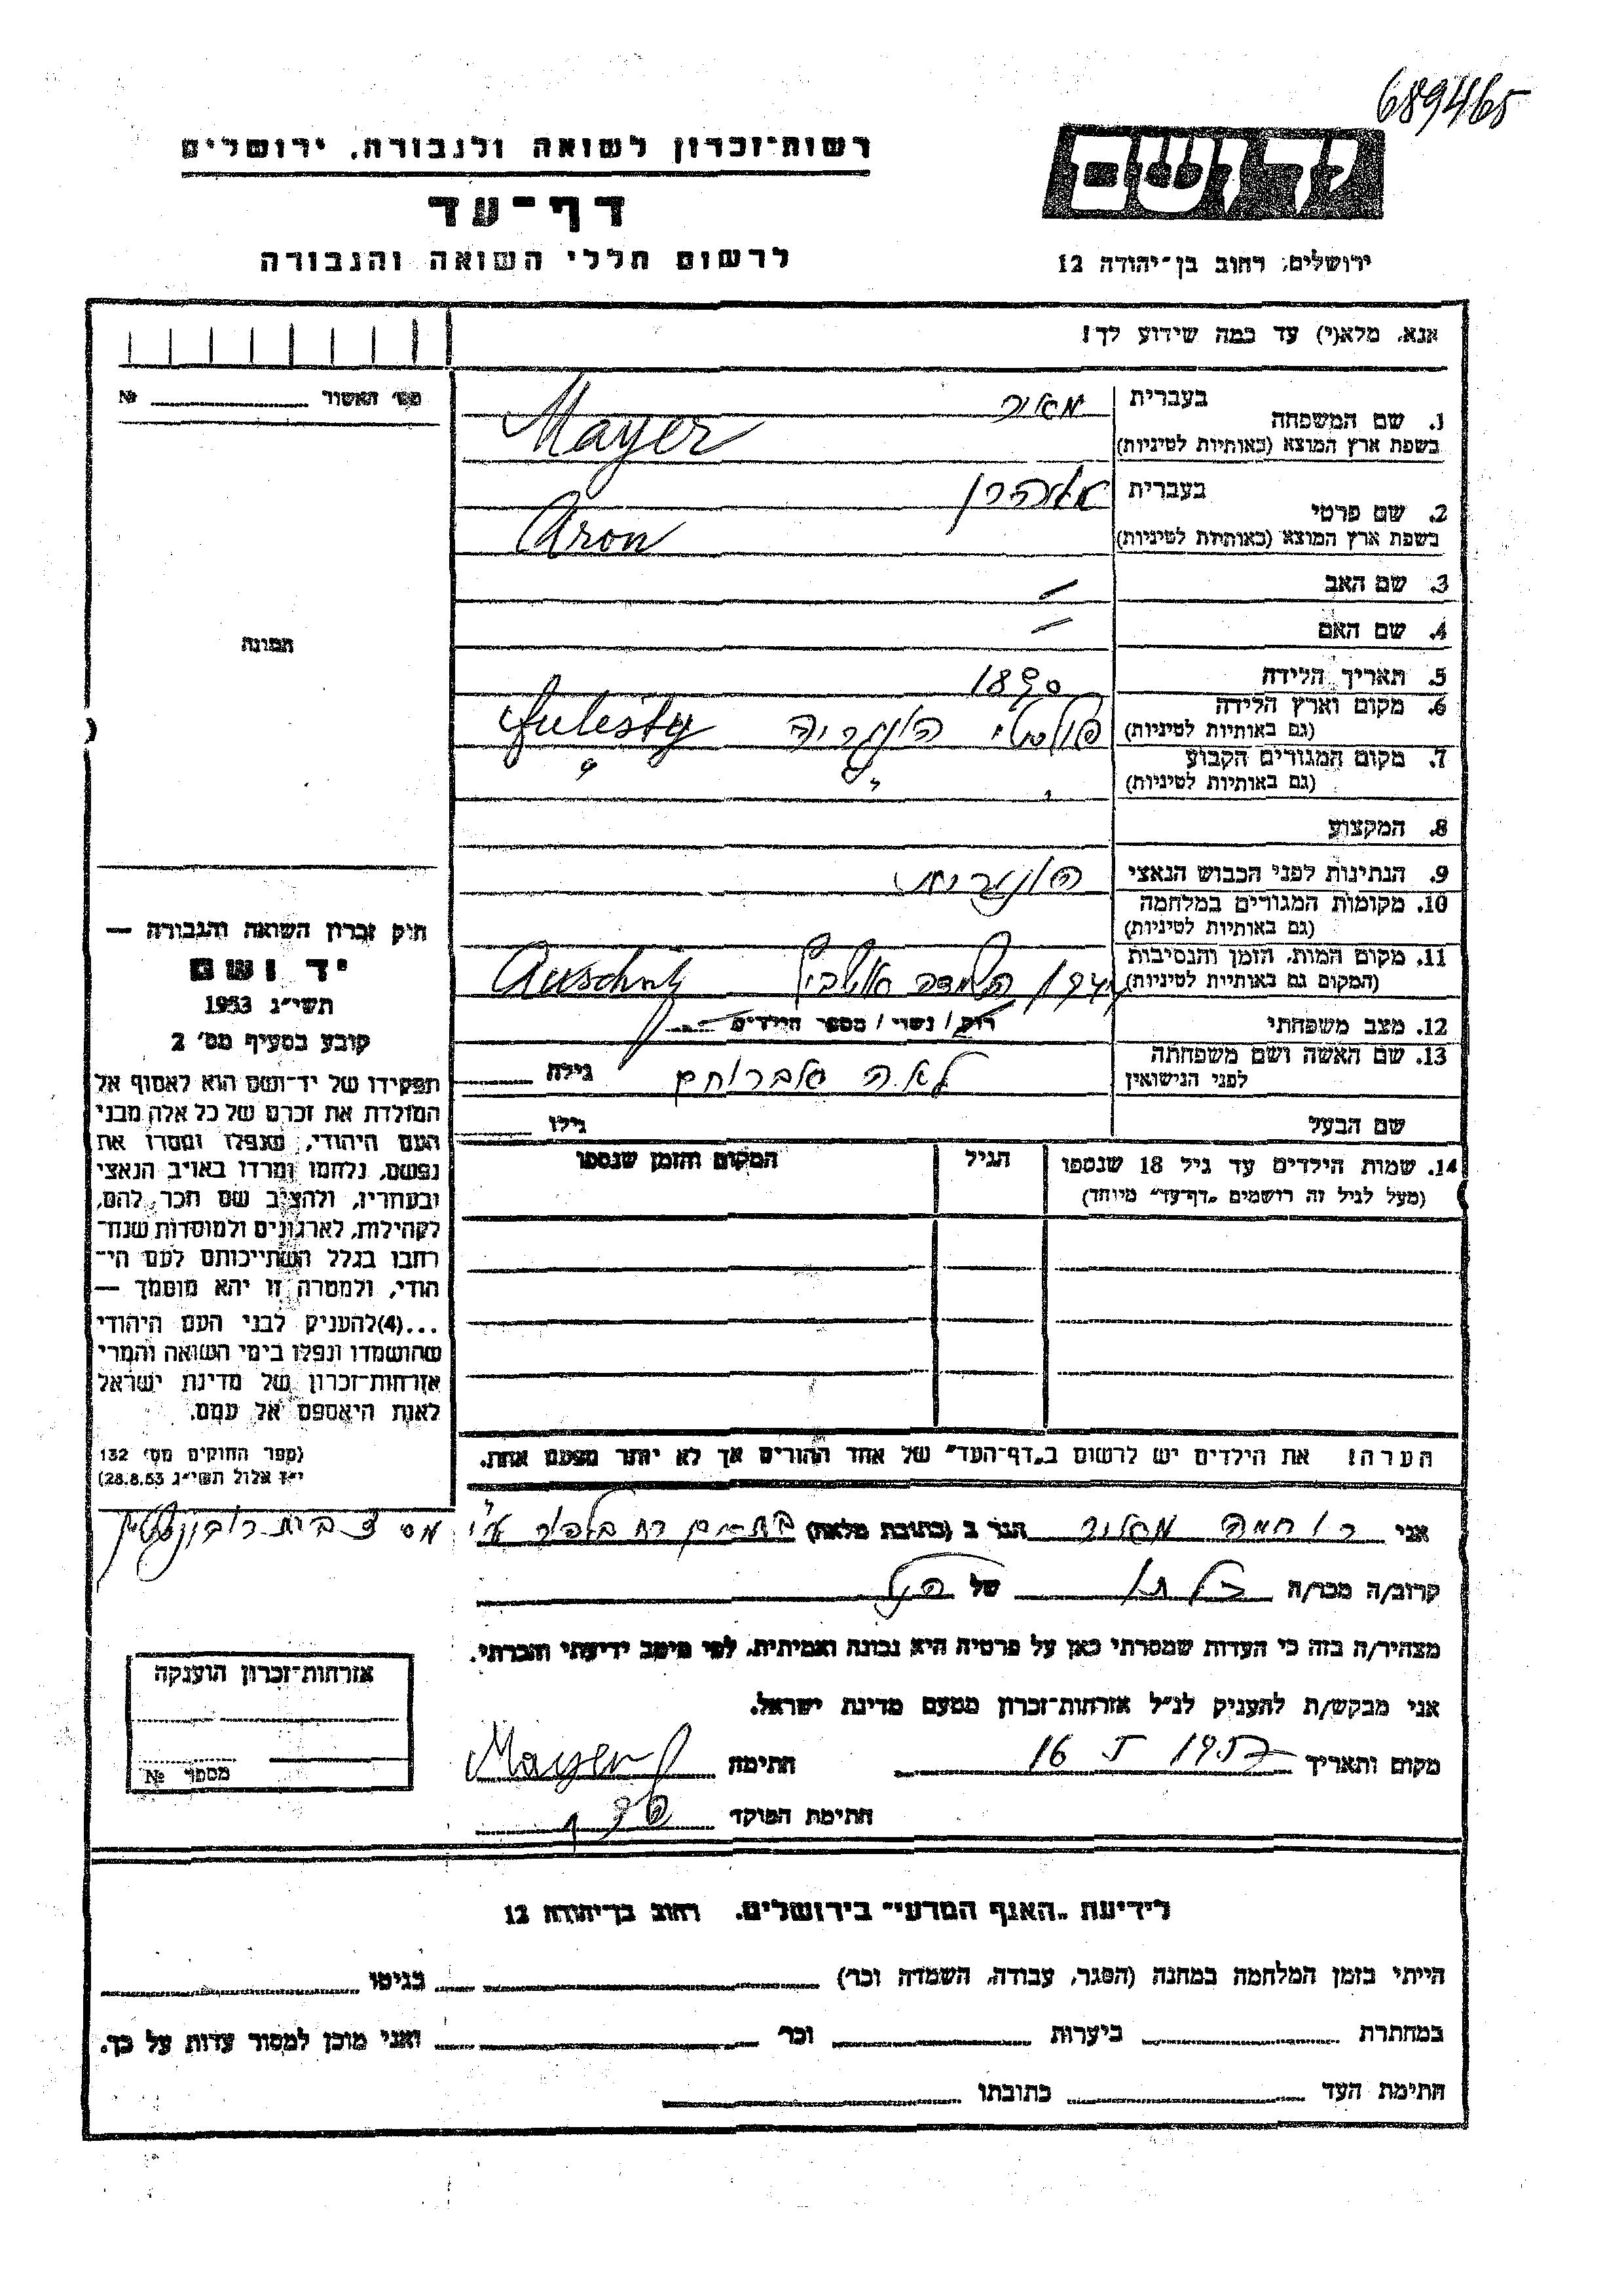 689465
רשות־זכרון לשואה ולגבורה, ירושלים
יד ושם
דף־עד
לרשום חללי השואה והגבורה
ירושלים, רחוב בן־יהודה 12
אנא, מלא(י) עד כמה שידוע לך!
מס׳ האשור № 
1. שם המשפחה
בעברית מאיר
בשפת ארץ המוצא (באותיות לטיניות) Mayer
2. שם פרטי
בעברית אהרן
בשפת ארץ המוצא (באותיות לטיניות) Aron
3. שם האב —
4. שם האם —
5. תאריך הלידה 1890
6. מקום וארץ הלידה
(גם באותיות לטיניות) הונגריה
7. מקום המגורים הקבוע
(גם באותיות לטיניות) " "
8. המקצוע
9. הנתינות לפני הכבוש הנאצי הונגרית
10. מקומות המגורים במלחמה
(גם באותיות לטיניות)
11. מקום המות, הזמן והנסיבות
(המקום גם באותיות לטיניות)
12. מצב משפחתי רווק / נשוי / מספר הילדים
13. שם האשה ושם משפחתה
לפני הנישואין לאה אברוחם גילה
שם הבעל גילו
14. שמות הילדים עד גיל 18 שנספו
(מעל לגיל זה רושמים „דף־עד״ מיוחד)
הגיל
המקום והזמן שנספו
הערה! את הילדים יש לרשום ב„דף־העד״ של אחד ההורים אך לא יותר מפעם אחת.
התמונה
חוק זכרון השואה והגבורה —
יד ושם
תשי״ג 1953
קובע בסעיף מס׳ 2
תפקידו של יד־ושם הוא לאסוף אל
המולדת את זכרם של כל אלה מבני
העם היהודי, שנפלו ומסרו את
נפשם, נלחמו ומרדו באויב הנאצי
ובעוזריו, ולהציב שם וזכר להם,
לקהילות, לארגונים ולמוסדות שנח־
רבו בגלל השתייכותם לעם הי־
הודי, ולמטרה זו יהא מוסמך —
...(4) להעניק לבני העם היהודי
שהושמדו ונפלו בימי השואה והמרי
אזרחות־זכרון של מדינת ישראל
לאות היאספם אל עמם.
(ספר החוקים מס׳ 132
י״ז אלול תשי״ג 28.8.53)
אני מאיר הגר ב (כתובת מלאה)
קרוב/ה מכר/ה כלתו של הנ״ל
מצהיר/ה בזה כי העדות שמסרתי כאן על פרטיה היא נכונה ואמיתית, לפי מיטב ידיעתי והכרתי.
אני מבקש/ת להעניק לנ״ל אזרחות־זכרון מטעם מדינת ישראל.
מקום ותאריך 16 5 1957 חתימה Mayer
חתימת הפוקד
אזרחות־זכרון הוענקה
מספר №
לידיעת „האגף המדעי״ בירושלים, רחוב בן־יהודה 12
הייתי בזמן המלחמה במחנה (הסגר, עבודה, השמדה וכו׳) בגיטו
במחתרת ביערות וכו׳ ואני מוכן למסור עדות על כך.
חתימת העד כתובתו